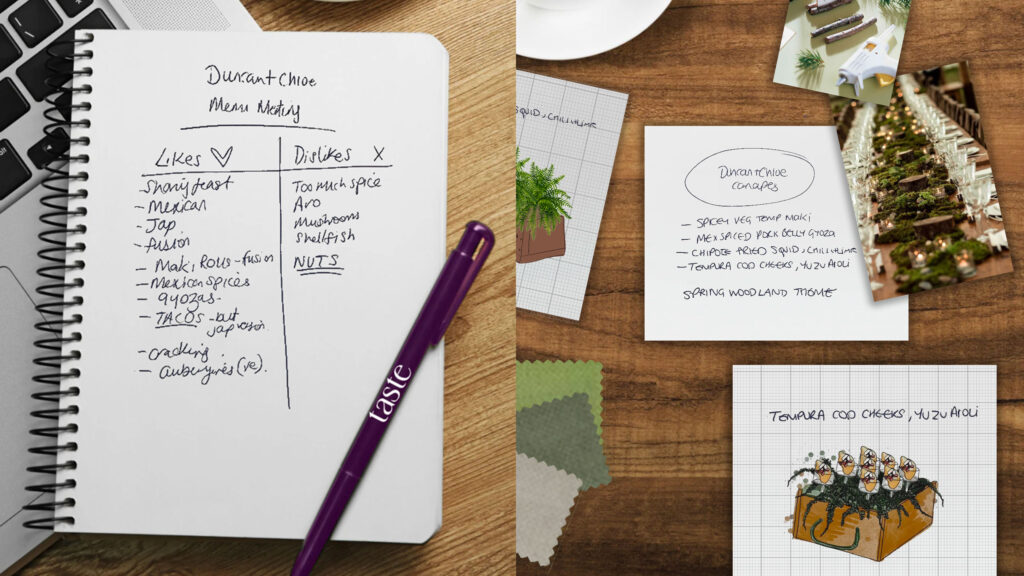 Durant Chloe
Menu Meeting
Likes
- Sharing feast
- Mexican
- Jap
- fusion
- Maki Rolls - fusion
- Mexican spices
- gyozas -
- TACOS - but
jap version.
- crackling
- Aubergines (ve).
Dislikes X
Too much spice
Avo
Mushrooms
Shellfish
NUTS
taste
SQUID, CHILLI+LIME
Durant Chloe
canapes
- SPICEY VEG TEMP MAKI
- MEX SPICED PORK BELLY GYOZA
- CHIPOTLE FRIED SQUID, CHILLI+LIME
- TEMPURA COD CHEEKS, YUZU AIOLI
SPRING WOODLAND THEME
TEMPURA COD CHEEKS, YUZU AIOLI